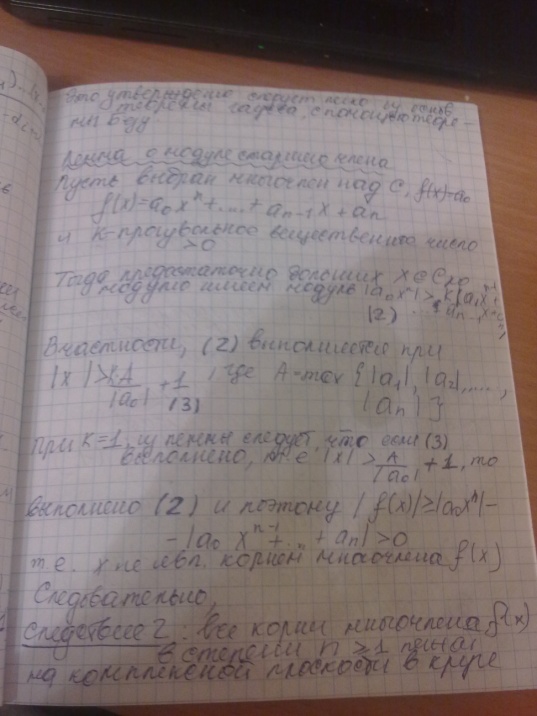 Это утверждение следует легко из основ.
теоремы Гаусса, с помощью теоре-
мы Безу
Лемма о модуле старшего члена
Пусть выбран многочлен над C, f(x)=a₀
f(x)=a₀xⁿ+...+aₙ₋₁x+aₙ
и K-произвольное вещественное число
>0
Тогда при достаточно больших x∈C по
модулю имеем модуль |a₀xⁿ|>K|a₁xⁿ⁻¹
(2) ...+aₙ₋₁x+aₙ|
В частности, (2) выполняется при
|x|>KA/|a₀|+1, где A-max{|a₁|,|a₂|,....,
(3) |aₙ|}
При K=1, из леммы следует, что если (3)
выполнено, т.е |x|>A/|a₀|+1, то
выполнено (2) и поэтому |f(x)|≥|a₀xⁿ|-
-|a₀xⁿ⁻¹+..+aₙ|>0
т.е. x не явл. корнем многочлена f(x)
Следовательно,
Следствие 2: все корни многочлена f(x)
в степени n≥1 лежат
на комплексной плоскости в круге